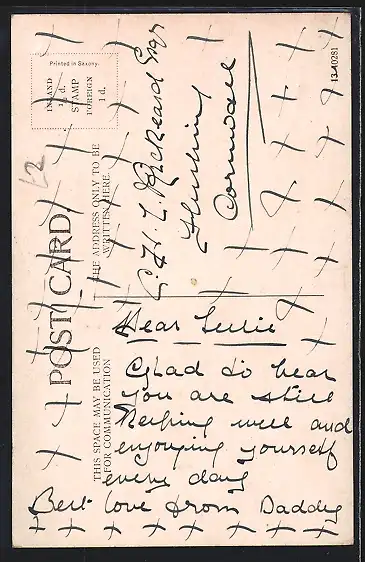 POST CARD
Printed in Saxony.
INLAND
½ d.
STAMP
FOREIGN
1 d.
THE ADDRESS ONLY TO BE
WRITTEN HERE.
THIS SPACE MAY BE USED
FOR COMMUNICATION
13-10281
C. H. L. Rickeard Esqr
Flushing
Cornwall
Dear Leslie
Glad to hear
you are still
Keeping well and
enjoying yourself
every day
Best love from Daddy